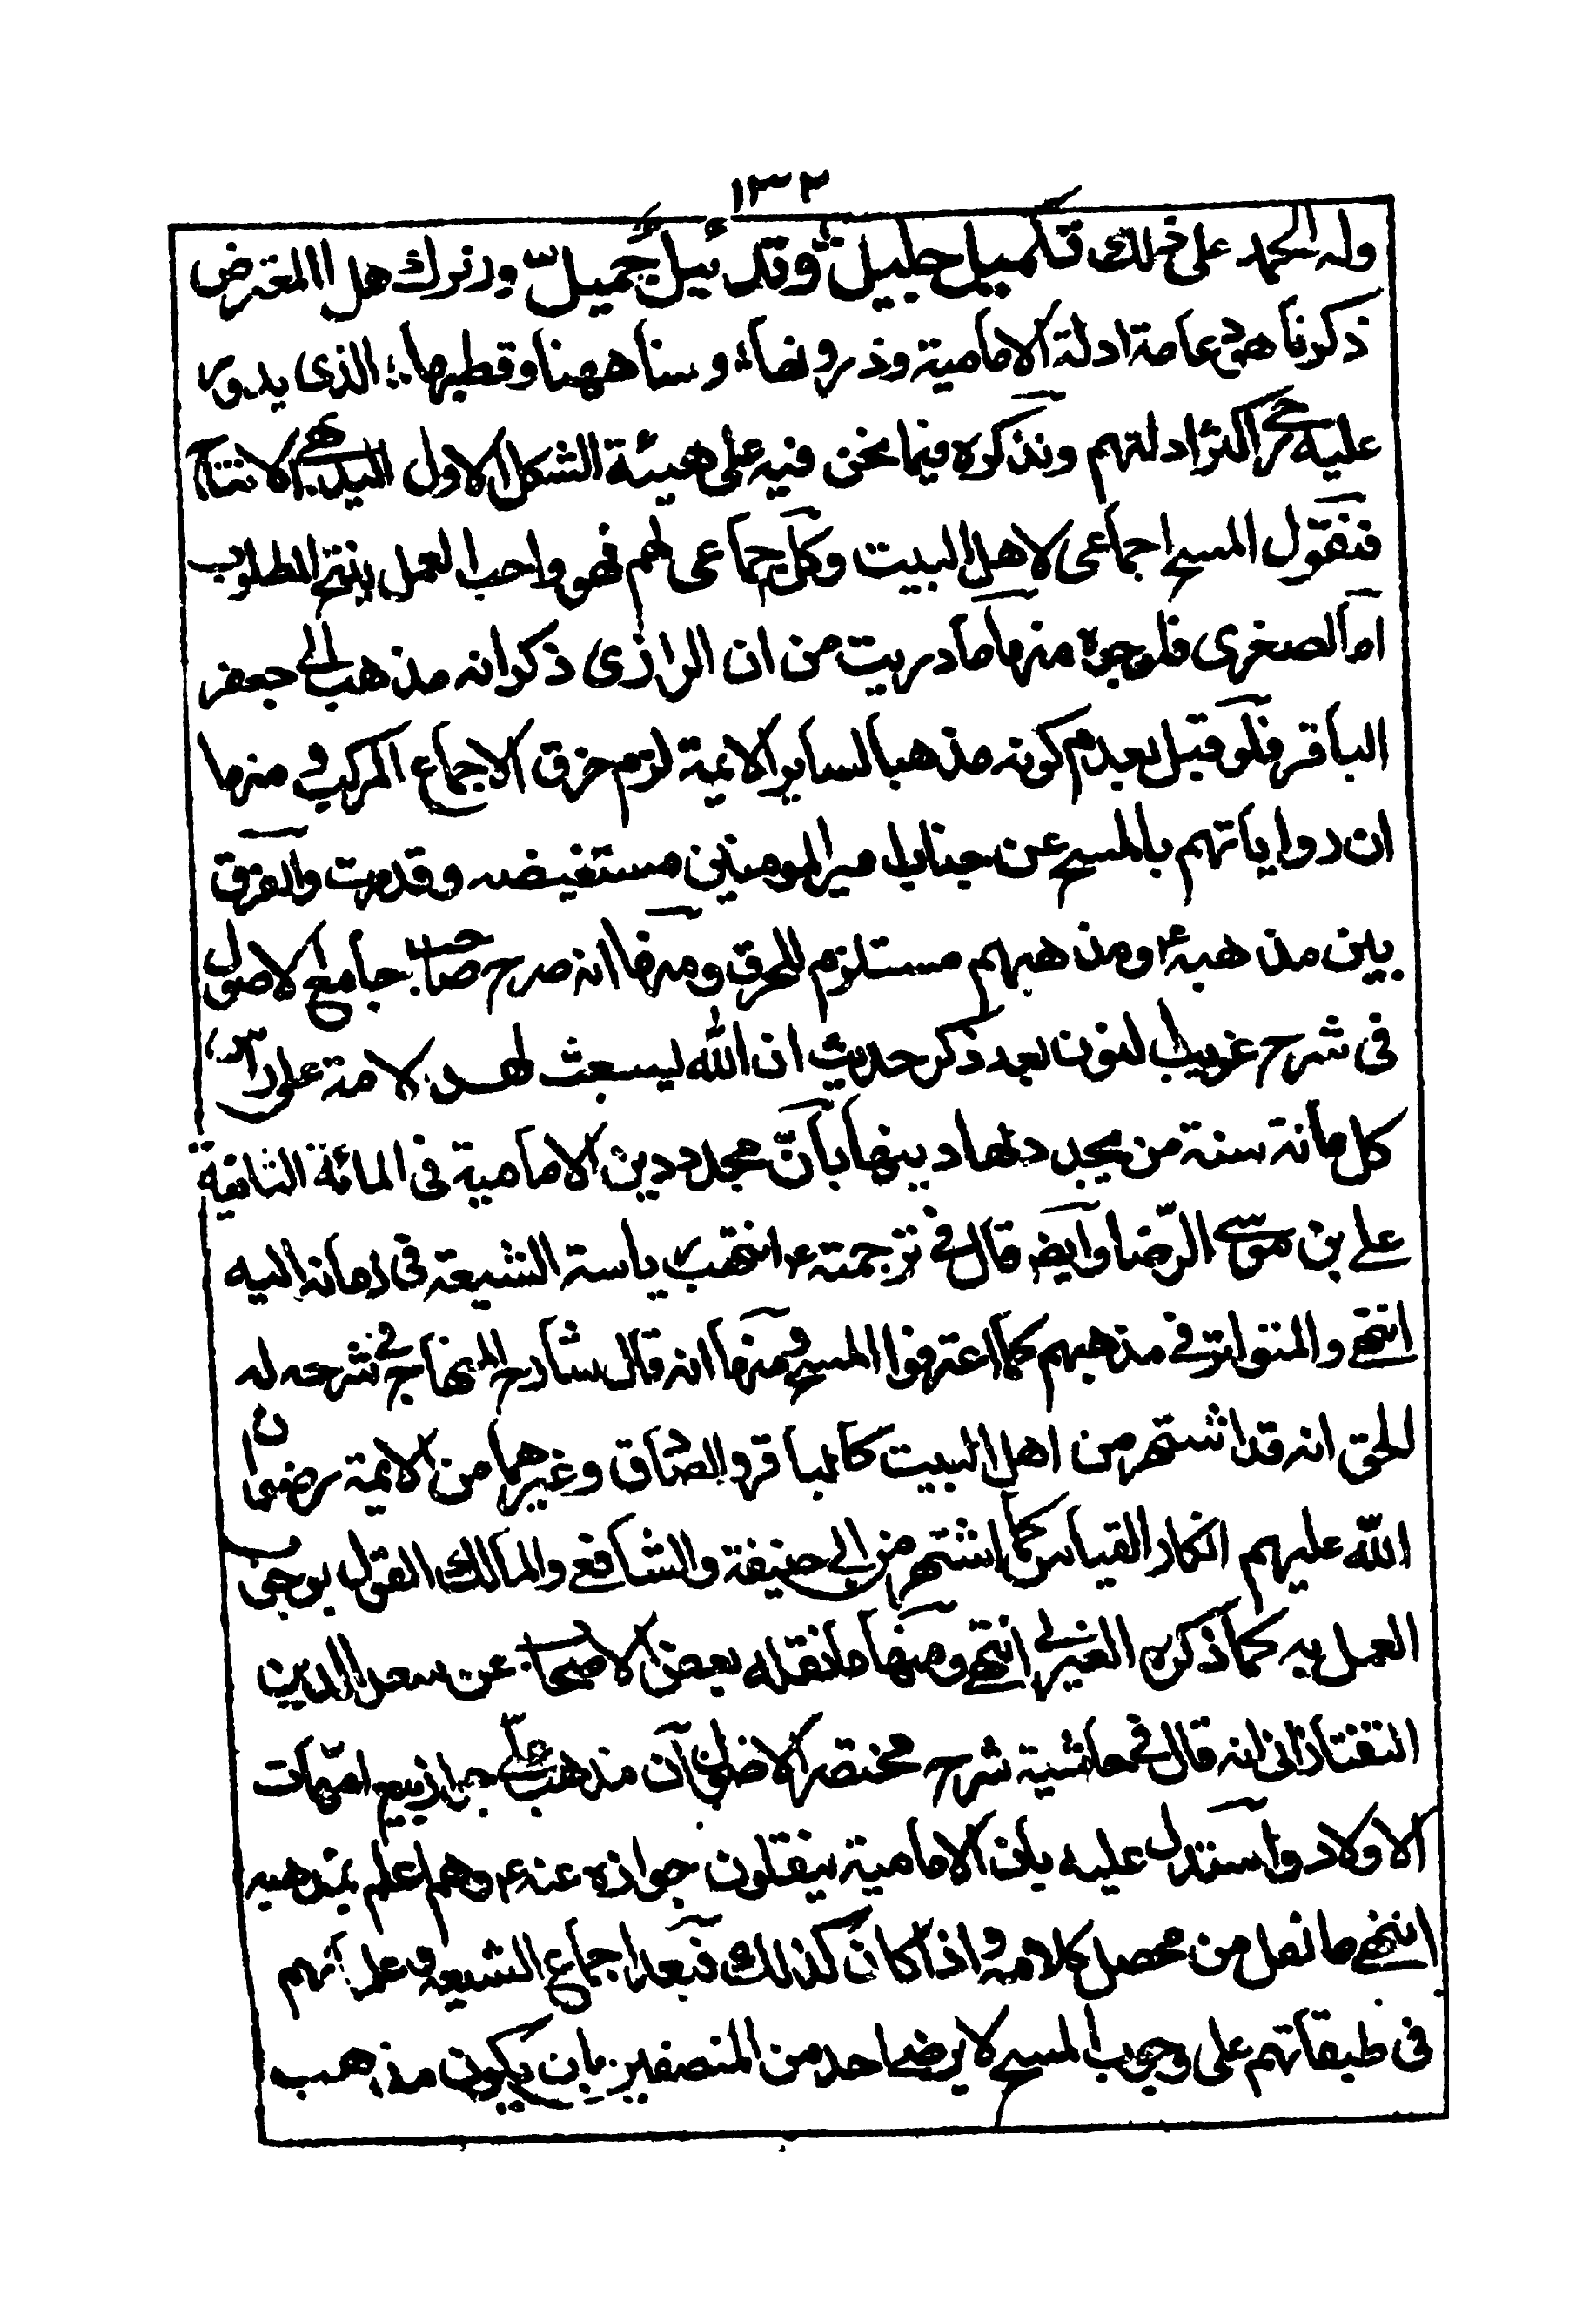 ١٣٢
وله الحمد على ذلك تكميل جليل وتذئيل جميل ورنرك هل االمعترض
ذكرنا هو عامة ادلة الامامية وذروفها وسناههنا وقطبها الذى يدور
عليه رحى اكثر ادلتهم ونذكره فيما نحن فيه على هيئة الشكل الاول البديهى الانتاج
فنقول المسح اجماعى لاهل البيت وكل اجماعى لهم فهو واجب العمل ينتج المطلوب
اما الصغرى فلوجوه منها ما دريت من ان الرازى ذكر انه مذهب ابى جعفر
الباقر فلو قيل بعدم كونه مذهبا لساير الايمة لزم خرق الاجماع المركب ومنها
ان رواياتهم بالمسح عن جناب امير المومنين مستفيضه وقد مرت والفرق
بين مذهبه ومذهبهم مستلزم للخرق ومنها انه صرح صاحب جامع الاصول
فى شرح غريب النون بعد ذكر حديث ان الله ليبعث لهذه الامة على راس
كل مائة سنة من يجدد لها دينها بانّ مجدد دين الامامية فى المائة الثانية
على بن موسى الرّضا وايضا قال فى ترجمته انتهت رياسة الشيعة فى زمانه اليه
انتهى والمتواتر فى مذهبهم كما اعترفوا المسح ومنها انه قال شارح المنهاج فى شرحه له
الحق انه قد اشتهر من اهل البيت كالباقر والصادق وغيرهما من الايمة رضوان
الله عليهم انكار القياس كما اشتهر من ابى حنيفة والشافعى والمالك القول بوجوب
العمل به كما ذكره الغزالى انتهى ومنها ما نقله بعض الاصحاب عن سعد الدين
التفتازانى انه قال فى حاشية شرح مختصر الاصول ان مذهب على جواز بيع امهات
الاولاد واستدل عليه بان الامامية ينقلون جوازه عنه وهم اعلم بمذهبه
انتهى ما نقل من محصل كلامه واذا كان كذلك فبعد اجماع الشيعة وعلمائهم
فى طبقاتهم على وجوب المسح لا يرضى احد من المنصفين بان يكون مذهب